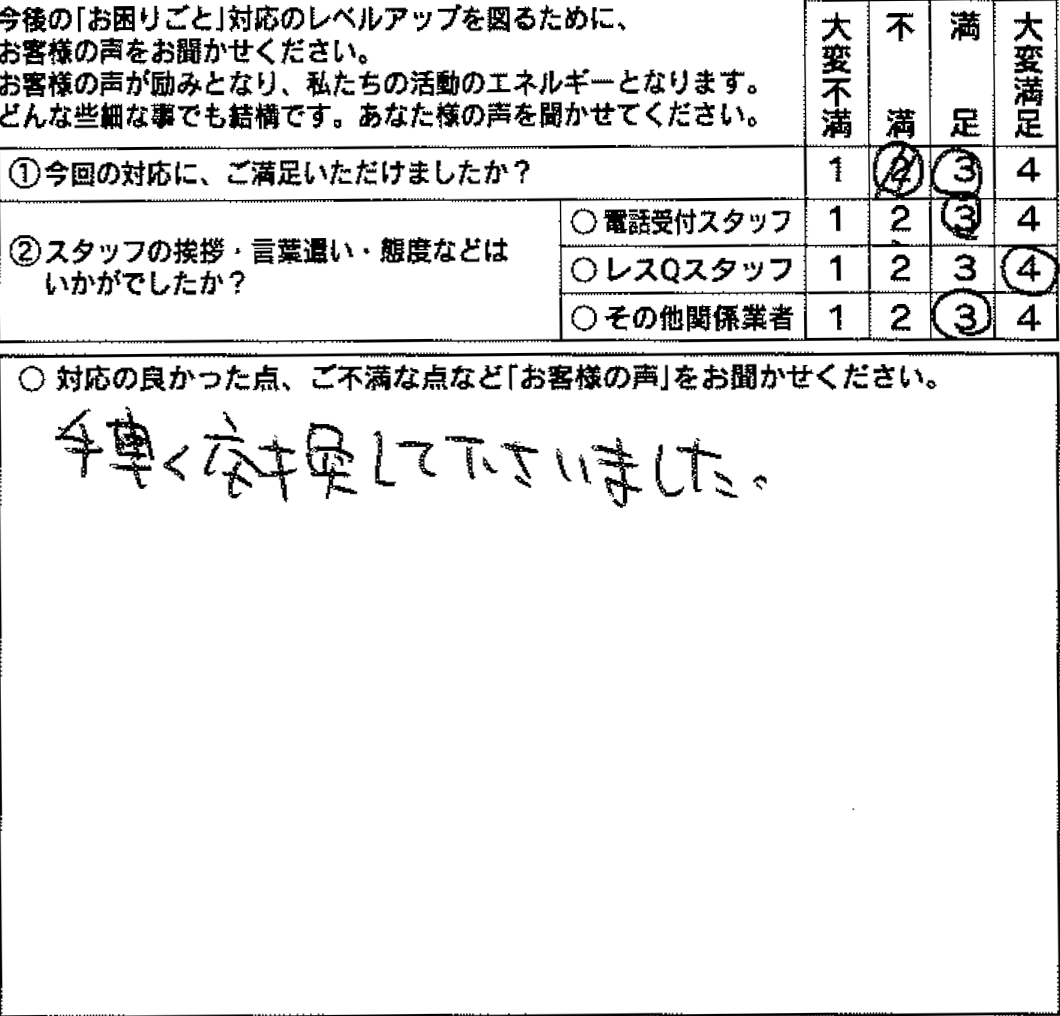 今後の「お困りごと」対応のレベルアップを図るために、
お客様の声をお聞かせください。
お客様の声が励みとなり、私たちの活動のエネルギーとなります。
どんな些細な事でも結構です。あなた様の声を聞かせてください。
大変不満 不満 満足 大変満足
①今回の対応に、ご満足いただけましたか? 1 2 3 4
②スタッフの挨拶・言葉遣い・態度などは
いかがでしたか?
○電話受付スタッフ 1 2 3 4
○レスQスタッフ 1 2 3 4
○その他関係業者 1 2 3 4
○ 対応の良かった点、ご不満な点など「お客様の声」をお聞かせください。
く して下さいました。